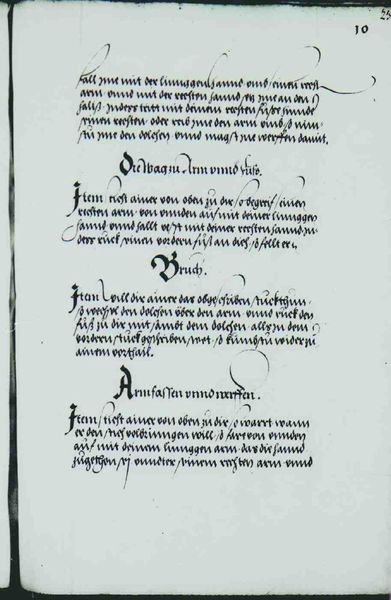 10
fall ime mit der linnggen hannd vnnd seinen recht
arm vnnd mit der rechten hannd
halß tritt mit deinem rechten fuß hinder
seinen rechten oder reib ime den arm vnnd so nim
ime den dolchen vnnd magst ine werffen damit.
Die wag zu Arm vnnd fuß.
Item sticht ainer von oben zu dir so begreif seinen
rechten arm von vnnden auf mit deiner linnggen
hannd vnnd fall mit deiner rechten hannd
ruck seinen vordern fuß an dich so felt er.
Bruch.
Item will dir ainer das obgeschriben stuckh thun
so wechsel den dolchen über den arm vnnd ruck den
fuß zu dir mit sambt dem dolchen als in dem
vordern stuck geschriben so kumbstu wider zu
ainem vorthail.
Arm fassen vnnd werffen.
Item sticht ainer von oben zu dir so wart wann
er den stich volbringen will so far von vnnden
auf mit deinem linnggen arm das die hannd
zugethon sej vnndter seinem rechten arm vnnd